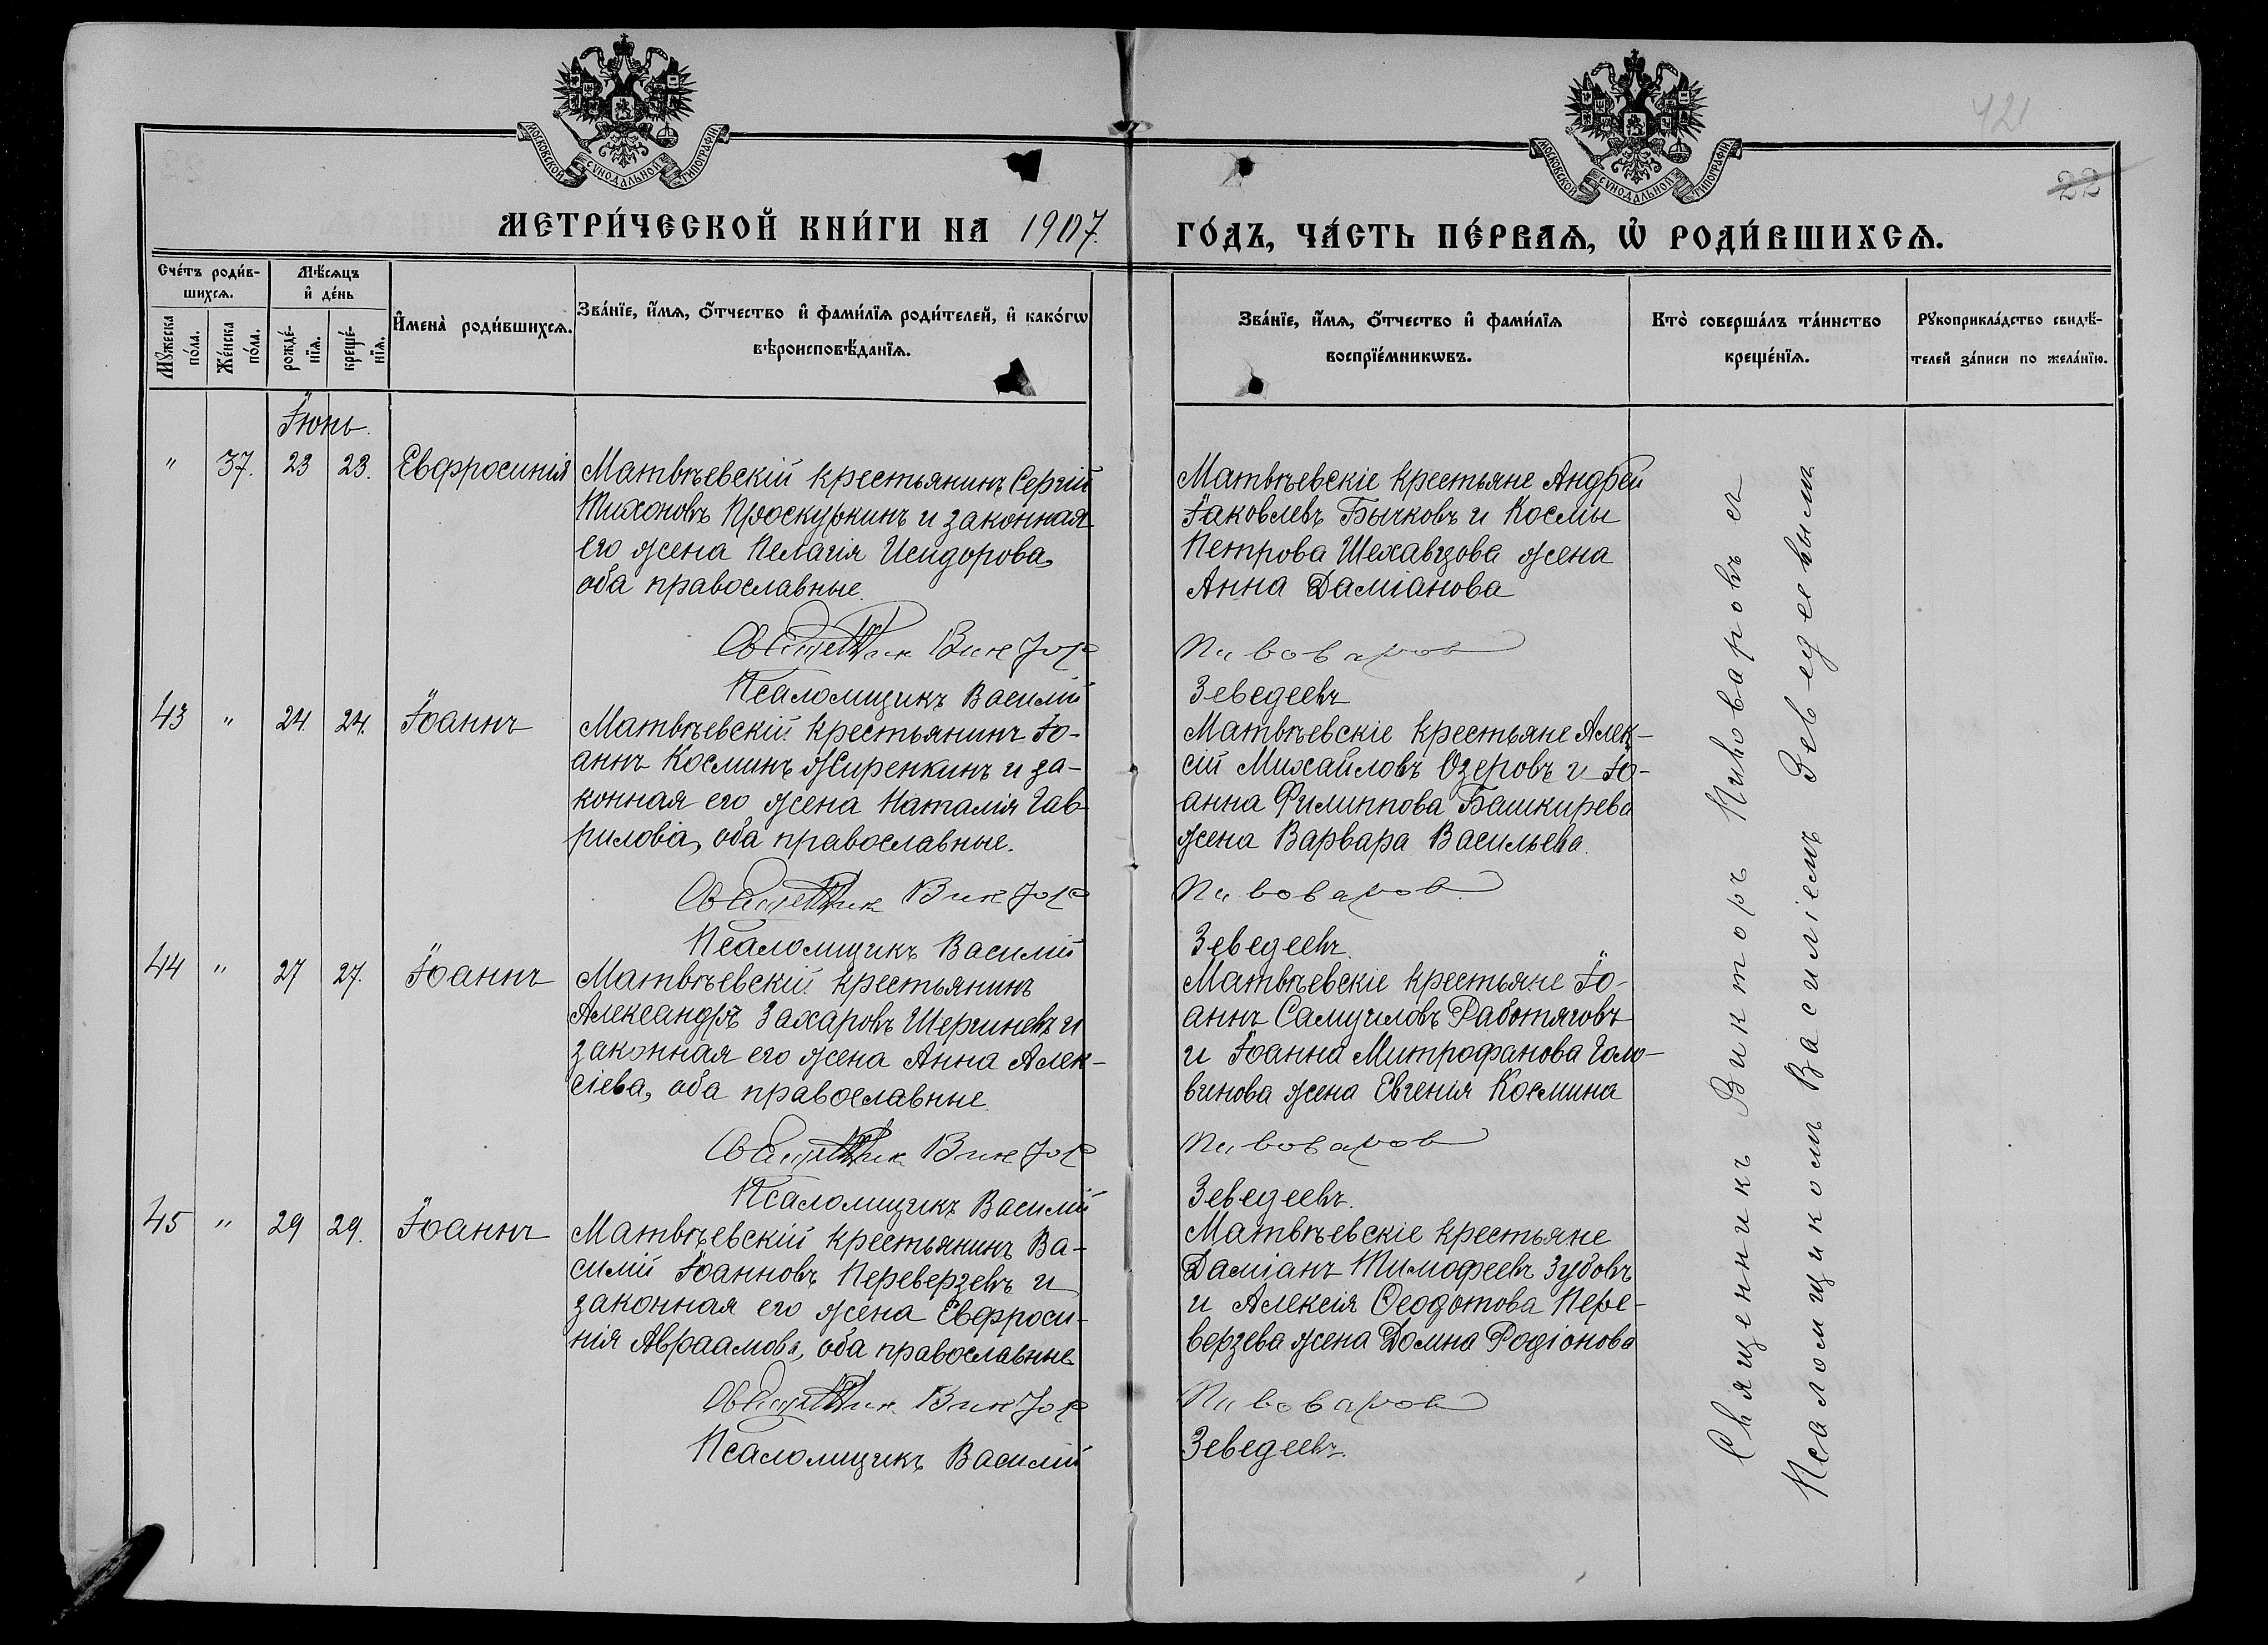 МОСКОВСКОЙ СѴНОДАЛЬНОЙ ТИПОГРАФІИ
МОСКОВСКОЙ СѴНОДАЛЬНОЙ ТИПОГРАФІИ
421
22
МЕТРИ́ЧЕСКОЙ КНИ́ГИ НА 1907.
ГО́ДЪ, ЧА́СТЬ ПЕ́РВАѦ, Ѡ҆ РОДИ́ВШИХСѦ.
Сче́тъ роди́в-
шихсѧ.
Мꙋ́жеска
по́ла.
Же́нска
по́ла.
Мѣ́сѧцъ
и҆ де́нь
рожде́-
нїѧ.
креще́-
нїѧ.
И҆мена̀ роди́вшихсѧ.
Зва́нїе, и҆́мѧ, ѻ҆́тчество и҆ фами́лїѧ роди́телей, и҆ како́гѡ
вѣроисповѣ́данїѧ.
Зва́нїе, и҆́мѧ, ѻ҆́тчество и҆ фами́лїѧ
воспрїе́мникѡвъ.
Кто̀ соверша́лъ та́инство
креще́нїѧ.
Рꙋкоприкла́дство свидѣ́-
телей за́писи по жела́нїю.
Іюнь.
" 37. 23 23. Евфросинія
Матвѣевскій крестьянинъ Сергій
Тихоновъ Проскуркинъ и законная
его жена Пелагія Исидорова,
оба православные.
Священник Виктор
Псаломщикъ Василій
Матвѣевскіе крестьяне Андрей
Іаковлевъ Бычковъ и Космы
Петрова Шехавцова жена
Анна Даміанова
Пивоваров
Зеведеевъ
43 " 24. 24. Іоаннъ
Матвѣевскій крестьянинъ Іо-
аннъ Косминъ Жиренкинъ и за-
конная его жена Наталія Гав-
рилова, оба православные.
Священник Виктор
Псаломщикъ Василій
Матвѣевскіе крестьяне Алек-
сій Михайловъ Озеровъ и Іо-
анна Филиппова Башкирева
жена Варвара Васильева.
Пивоваров
Зеведеевъ.
44 " 27 27. Іоаннъ
Матвѣевскій крестьянинъ
Александръ Захаровъ Шергиневъ и
законная его жена Анна Алек-
сіева, оба православные.
Священник Виктор
Псаломщикъ Василій
Матвѣевскіе крестьяне Іо-
аннъ Самуиловъ Работяговъ
и Іоанна Митрофанова Голо-
винова жена Евгенія Космина
Пивоваров
Зеведеевъ.
45 " 29 29. Іоаннъ
Матвѣевскій крестьянинъ Ва-
силій Іоанновъ Переверзевъ и
законная его жена Евфроси-
нія Авраамова, оба православные.
Священник Виктор
Псаломщикъ Василій
Матвѣевскіе крестьяне
Даміанъ Тимофеевъ Зубовъ
и Алексія Ѳеодотова Пере-
верзева жена Домна Родіонова
Пивоваров
Зеведеевъ.
Священникъ Викторъ Пивоваровъ съ
Псаломщикомъ Василіемъ Зеведеевымъ.